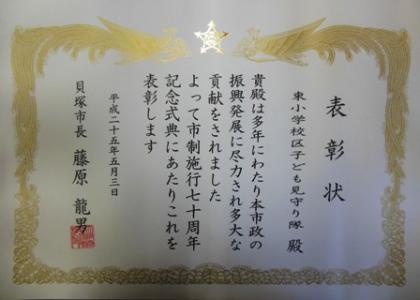 表彰状
東小学校区子ども見守り隊 殿
貴殿は多年にわたり本市政の
振興発展に尽力され多大な
貢献をされました
よって市制施行七十周年
記念式典にあたりこれを
表彰します
平成二十五年五月三日
貝塚市長 藤原 龍男